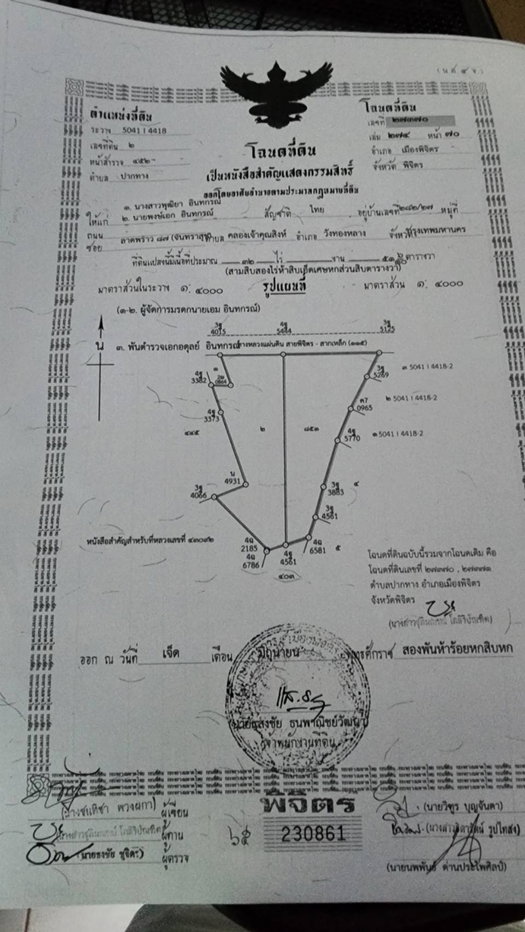 (น.ส. ๔ จ.)
ตำแหน่งที่ดิน
ระวาง 5041 I 4418
เลขที่ดิน ๒
หน้าสำรวจ ๔๕๒
ตำบล ปากทาง
โฉนดที่ดิน
เลขที่ ๒๗๓๗๐
เล่ม ๒๗๔ หน้า ๗๐
อำเภอ เมืองพิจิตร
จังหวัด พิจิตร
โฉนดที่ดิน
เป็นหนังสือสำคัญแสดงกรรมสิทธิ์
ออกโดยอาศัยอำนาจตามประมวลกฎหมายที่ดิน
ให้แก่
๑. นางสาวพุฒิยา อินทกรณ์
๒. นายพงษ์เอก อินทกรณ์ สัญชาติ ไทย อยู่บ้านเลขที่ ๒๘๒/๒๗ หมู่ที่
ถนน
ซอย ลาดพร้าว ๘๗ (จันทราสุข) ตำบล คลองเจ้าคุณสิงห์ อำเภอ วังทองหลาง จังหวัด กรุงเทพมหานคร
ที่ดินแปลงนี้มีเนื้อที่ประมาณ ๓๒ ไร่ งาน ตารางวา
(สามสิบสองไร่ห้าสิบเอ็ดเศษหกส่วนสิบตารางวา)
มาตราส่วนในระวาง ๑: ๔๐๐๐ รูปแผนที่ มาตราส่วน ๑: ๔๐๐๐
(๑-๒. ผู้จัดการมรดกนายเอม อินทกรณ์)
๓. พันตำรวจเอกอดุลย์ อินทกรณ์
ทางหลวงแผ่นดิน สายพิจิตร - สากเหล็ก (๑๑๕)
น
4015
5464
5125
3382
3373
๔๔๕
น
4931
4066
๒
๘๕๑
5269
ค7
0965
5770
3883
4561
6581
2185
6786
4561
๔
๕
๔๐๓
๓ 5041 I 4418-2
๒ 5041 I 4418-2
๑ 5041 I 4418-2
หนังสือสำคัญสำหรับที่หลวงเลขที่ ๔๓๐๙๒
โฉนดที่ดินฉบับนี้รวมจากโฉนดเดิม คือ
โฉนดที่ดินเลขที่ ๒๗๓๗๐ , ๒๗๓๗๑
ตำบลปากทาง อำเภอเมืองพิจิตร
จังหวัดพิจิตร
ออก ณ วันที่ เจ็ด เดือน มิถุนายน พุทธศักราช สองพันห้าร้อยหกสิบหก
(นายธงชัย ธนพาณิชย์วัฒนา)
เจ้าพนักงานที่ดิน
ผู้เขียน
ผู้ทาน
ผู้ตรวจ
พิจิตร
230861
(นายวิฑูร บุญจันดา)
(นายนพพันธ์ ด่านประไพศิลป์)